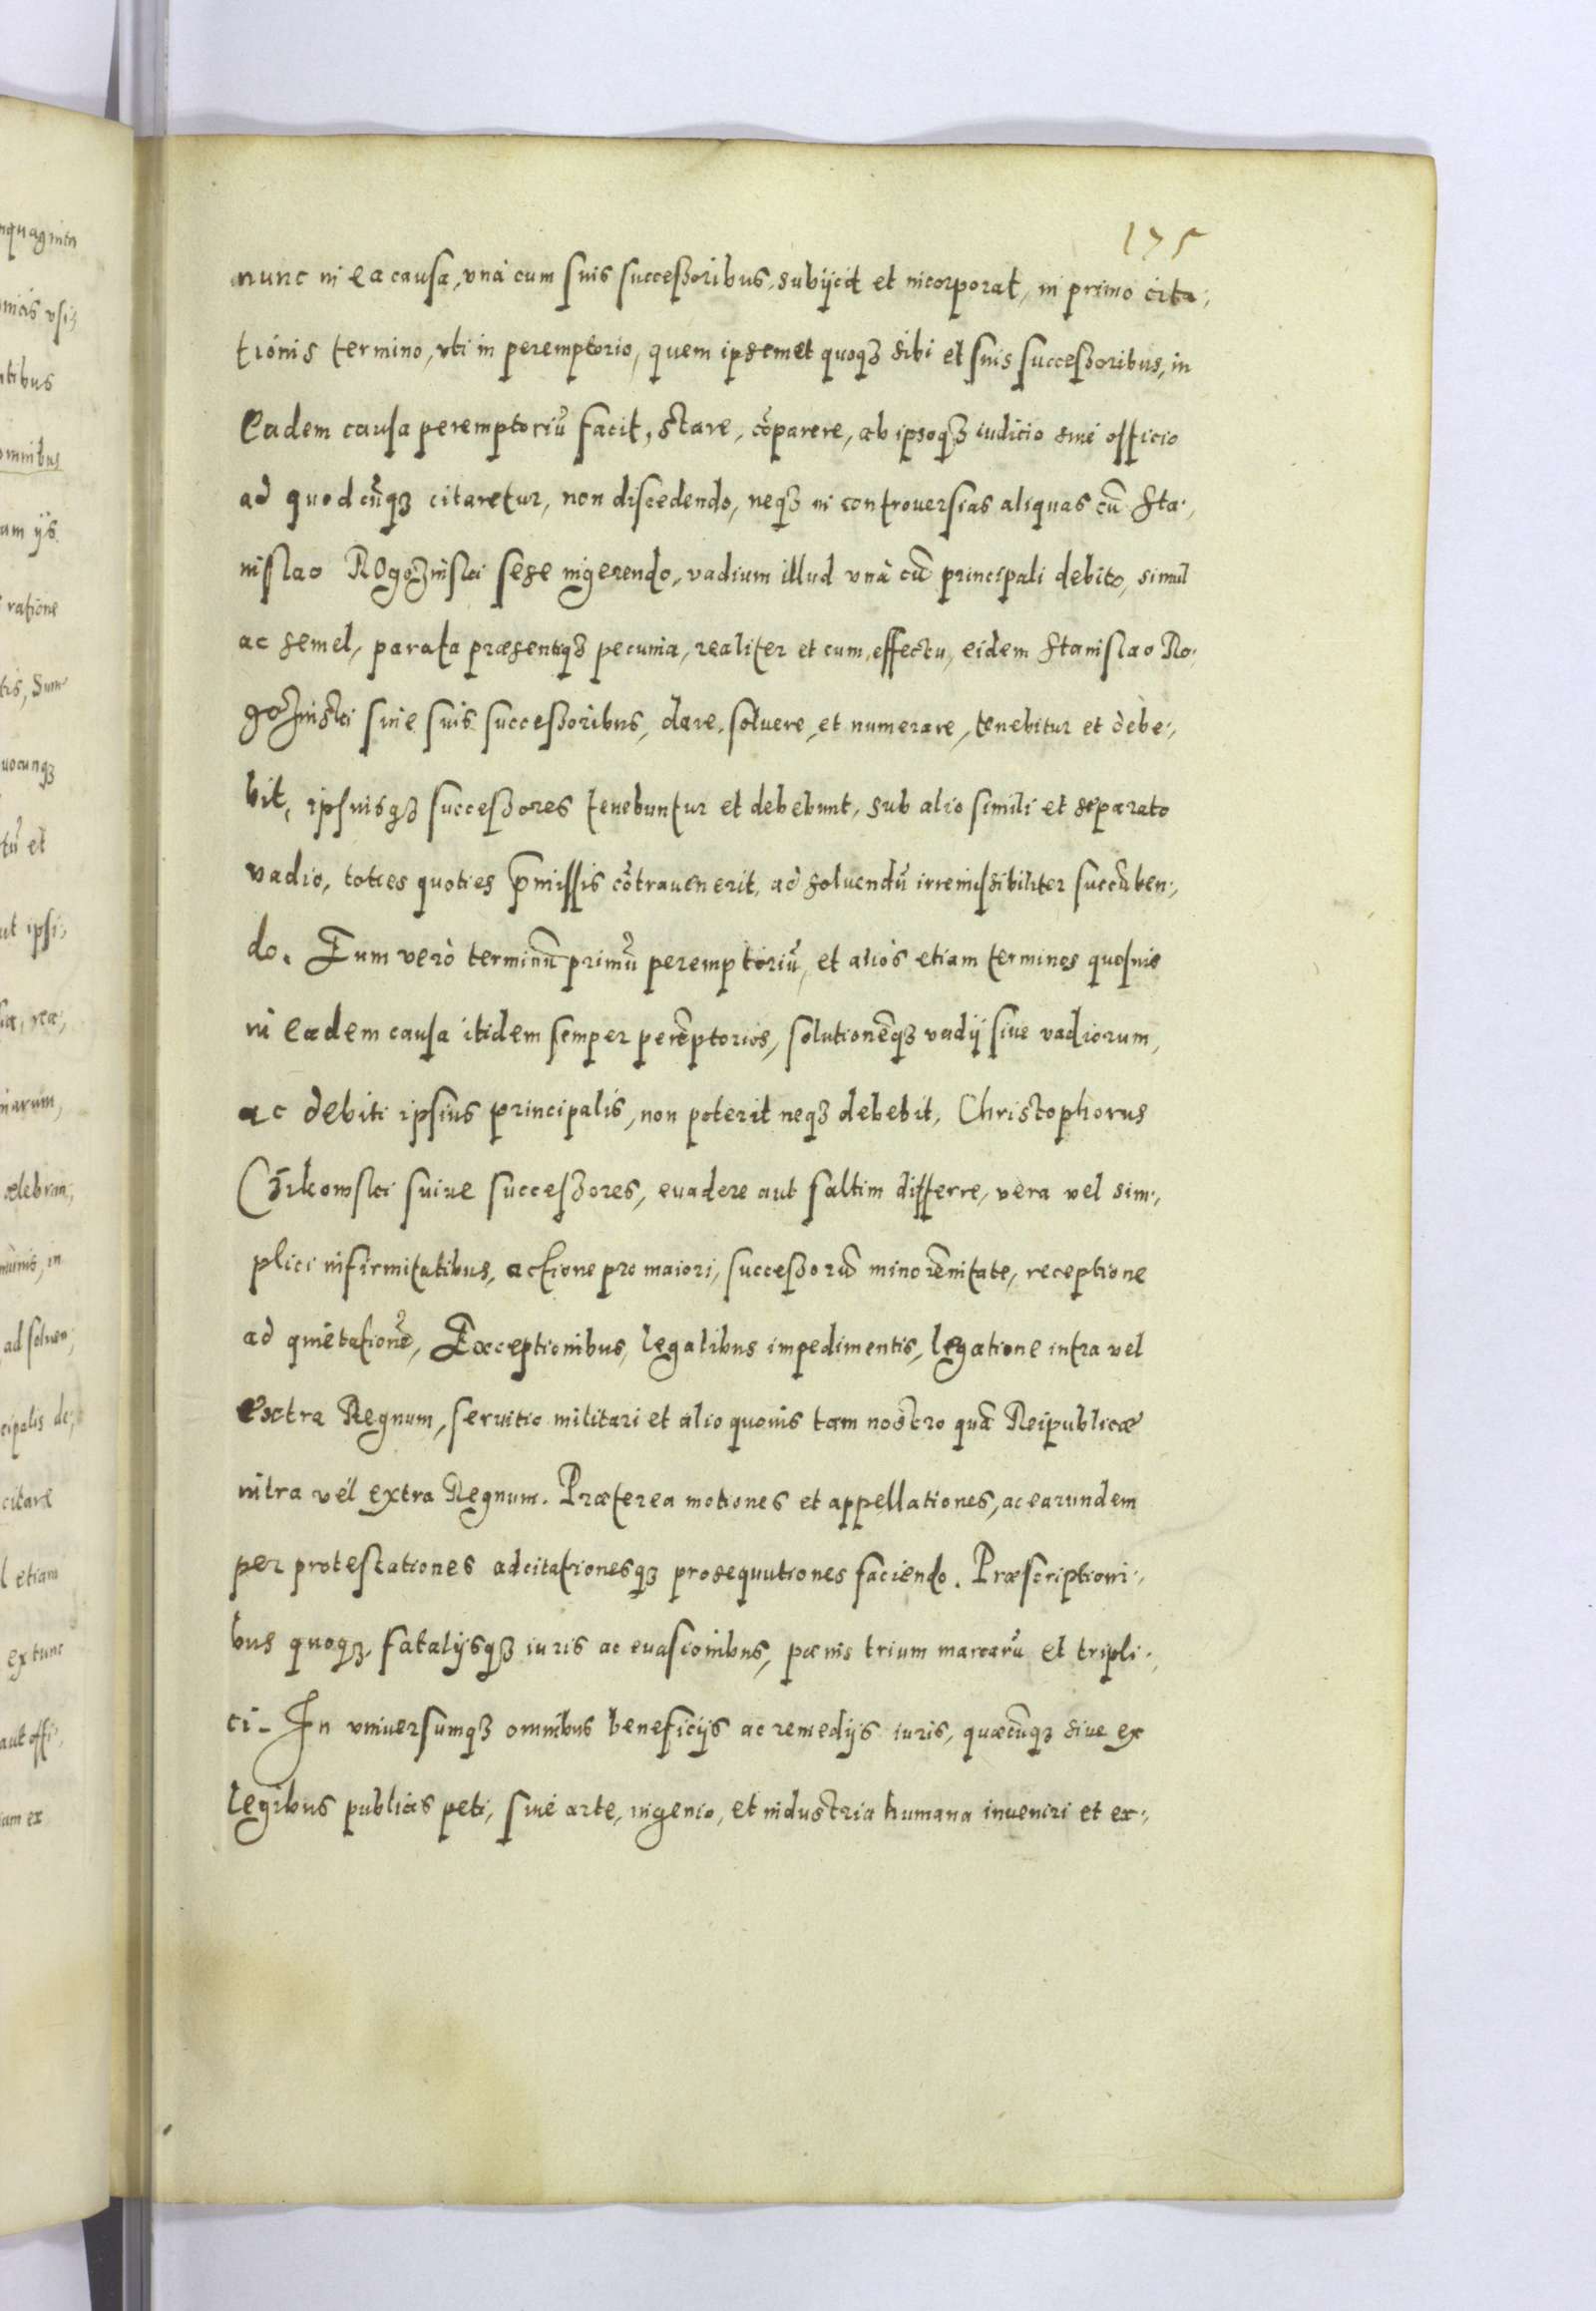 175
nunc in ea causa, vnà cum suis successoribus, subijcit et incorporat, in primo cita-,
tionis termino, vti in peremptorio, quem ipsemet quoqʒ sibi et suis successoribus, in
Eadem causa peremptoriũ facit, stare, cõparere, ab ipsoqʒ iudicio siue officio
ad quodcũqʒ citaretur, non discedendo, neqʒ in controuersias aliquas cũ Sta-,
nislao ROgozinski sese ingerendo, vadium illud vnà cũ principali debito, simul
ac semel, parata præsentiqʒ pecunia, realiter et cum effectu, eidem Stanislao Ro-
gozinski siue suis successoribus, dare, soluere, et numerare, tenebitur et debe-,
bit, ipsuisqʒ successores tenebuntur et debebunt, sub alio simili et separato
vadio, toties quoties p̃missis cõtrauenerit, ad soluendũ irremissibiliter succũben-,
do. Eum verò terminũ primũ peremptoriũ, et aliòs etiam terminos quosuis
in eadem causa itidem semper perẽptorios, solutionẽqʒ vadij siue vadiorum,
ac debiti ipsius principalis, non poterit neqʒ debebit, Christophorus
Czikowski suiue successores, euadere aut saltim differre, vera vel sim-,
plici infirmitatibus, actione pro maiori, successorũ minorẽnitate, receptione
ad quietationẽ, Exceptionibus, legalibus impedimentis, legatione intra vel
extra Regnum, seruitio militari et alio quouis tam nostro quã Reipublicæ
intra vel extra Regnum. Præterea motiones et appellationes, ac earundem
per protestationes adcitationesqʒ prosequutiones faciendo. Præscriptioni-,
bus quoqʒ, fatalijsqʒ iuris ac euasionibus, pœnis trium marcarũ et tripli-,
ci- In vniuersumqʒ omnibus beneficijs ac remedijs iuris, quæcũqʒ siue ex
legibus publicis peti, siue arte, ingenio, et industria humana inueniri et ex-,